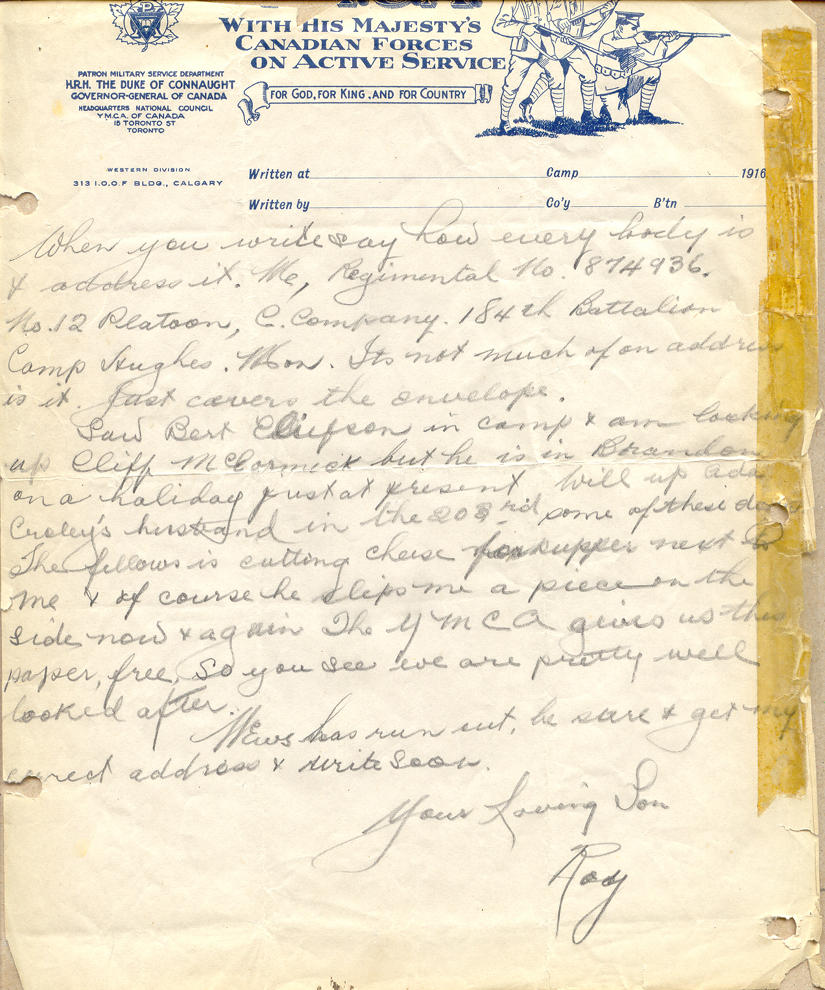 WITH HIS MAJESTY'S
CANADIAN FORCES
ON ACTIVE SERVICE
FOR GOD, FOR KING, AND FOR COUNTRY
PATRON MILITARY SERVICE DEPARTMENT
H.R.H. THE DUKE OF CONNAUGHT
GOVERNOR-GENERAL OF CANADA
HEADQUARTERS NATIONAL COUNCIL
Y.M.C.A. OF CANADA
15 TORONTO ST
TORONTO
WESTERN DIVISION
313 I.O.O.F BLDG., CALGARY
Written at Camp 1916
Written by Co'y B'tn
When you write say how every body is
& address it. Me, Regimental No. 874936.
No. 12 Platoon, C. Company. 184th Battalion
Camp Hughes. Man. Its not much of an address
is it. Just covers the envelope.
Saw Bert in camp & am looking
up Cliff McCormick but he is in Brandon
on a holiday just at present Will up Ada
Croley's husband in the 203rd some of these days
The fellows is cutting cheese for supper next to
me & of course he slips me a piece on the
side now & again The Y M C A gives us this
paper, free, So you see we are pretty well
looked after.
News has run out, be sure & get my
correct address & write soon.
Your Loving Son
Roy